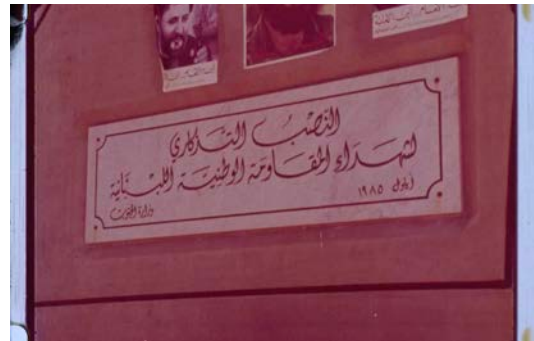 النصب التذكاري
لشهداء المقاومة الوطنية اللبنانية
أيلول ١٩٨٥
وزارة الجنوب